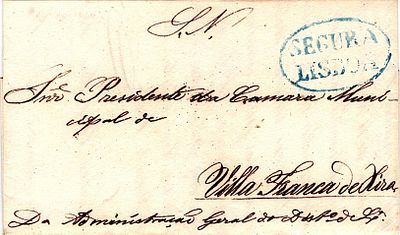 S. N.
SEGURA
LISBOA
Snr. Presidente da Camara Muni-
cipal de
Villa Franca de Xira
Da Administração Geral do Distº de Lxª